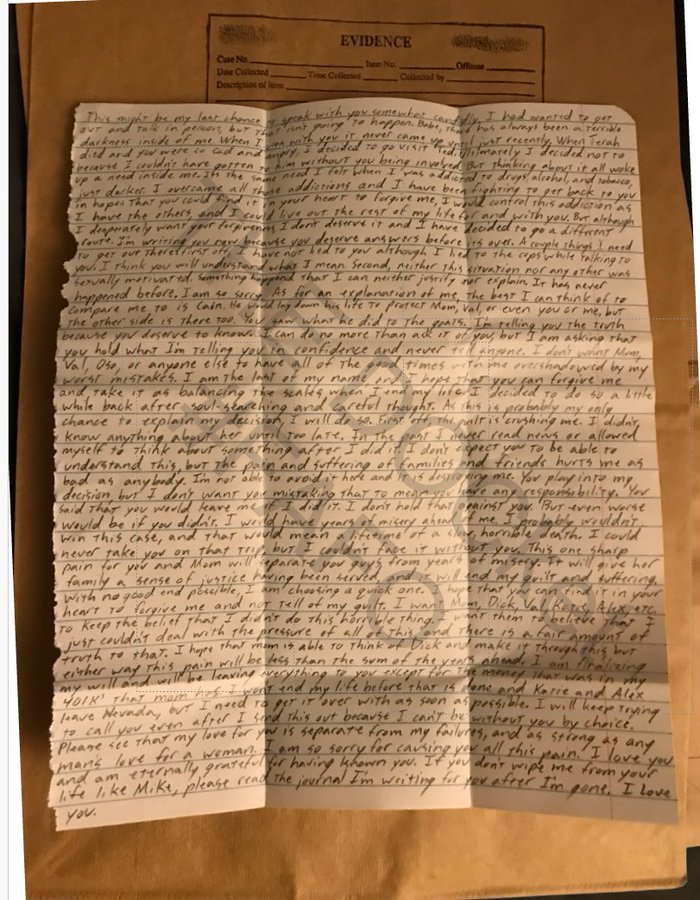 EVIDENCE
Case No. Item No. Offense
Date Collected Time Collected Collected by
Description of Item
This might be my last chance to speak with you somewhat candidly. I had wanted to get
out and talk in person, but that isn't going to happen. Babe, there has always been a terrible
darkness inside of me. When I was with you it never came up until just recently. When Terah
died and you were so sad and angry, I decided to go visit Ted. Ultimately I decided not to
because I couldn't have gotten to him without you being involved. But thinking about it all woke
up a need inside me. It's the same need I felt when I was addicted to drugs, alcohol, and tobacco,
just darker. I overcame all those addictions and I have been fighting to get back to you
in hopes that you could find it in your heart to forgive me, I would control this addiction as
I have the others, and I could live out the rest of my life for and with you. But although
I desperately want your forgiveness I don't deserve it and I have decided to go a different
route. I'm writing you now because you deserve answers before it is over. A couple things I need
to get out there first off, I have not lied to you although I lied to the cops while talking to
you. I think you will understand what I mean. Second, neither this situation nor any other was
sexually motivated. Something happened that I can neither justify nor explain. It has never
happened before. I am so sorry. As for an explanation of me, the best I can think of to
compare me to is Cain. He would lay down his life to protect Mom, Val, or even you or me, but
the other side is there too. You saw what he did to the goats. I'm telling you the truth
because you deserve to know. I can do no more than ask it of you, but I am asking that
you hold what I'm telling you in confidence and never tell anyone. I don't want Mom,
Val, Oso, or anyone else to have all of the good times with me overshadowed by my
worst mistakes. I am the last of my name and I hope that you can forgive me
and take it as balancing the scales when I end my life. I decided to do so a little
while back after soul-searching and careful thought. As this is probably my only
chance to explain my decision, I will do so. First off the guilt is crushing me. I didn't
know anything about her until too late. In the past I never read news or allowed
myself to think about something after I did it. I don't expect you to be able to
understand this, but the pain and suffering of families and friends hurts me as
bad as anybody. I'm not able to avoid it here and it is destroying me. You play into my
decision, but I don't want you mistaking that to mean you have any responsibility. You
said that you would leave me if I did it. I don't hold that against you. But even worse
would be if you didn't. I would have years of misery ahead of me. I probably wouldn't
win this case, and that would mean a lifetime of a slow, horrible death. I could
never take you on that trip, but I couldn't face it without you. This one sharp
pain for you and Mom will separate you guys from years of misery. It will give her
family a sense of justice having been served, and it will end my guilt and suffering.
With no good end possible, I am choosing a quick one. I hope that you can find it in your
heart to forgive me and not tell of my guilt. I want Mom, Dick, Val, Katie, Alex, etc.
to keep the belief that I didn't do this horrible thing. I want them to believe that I
just couldn't deal with the pressure of all of this and there is a fair amount of
truth to that. I hope that mom is able to think of Dick and make it through this but
either way this pain will be less than the sum of the years ahead. I am finalizing
my will and will be leaving everything to you except for the money that was in my
401K's that mom has. I won't end my life before that is done and Katie and Alex
leave Nevada, but I need to get it over with as soon as possible. I will keep trying
to call you even after I send this out because I can't be without you by choice.
Please see that my love for you is separate from my failures, and as strong as any
mans love for a woman. I am so sorry for causing you all this pain. I love you
and am eternally grateful for having known you. If you don't wipe me from your
life like Mike, please read the journal I'm writing for you after I'm gone. I love
you.